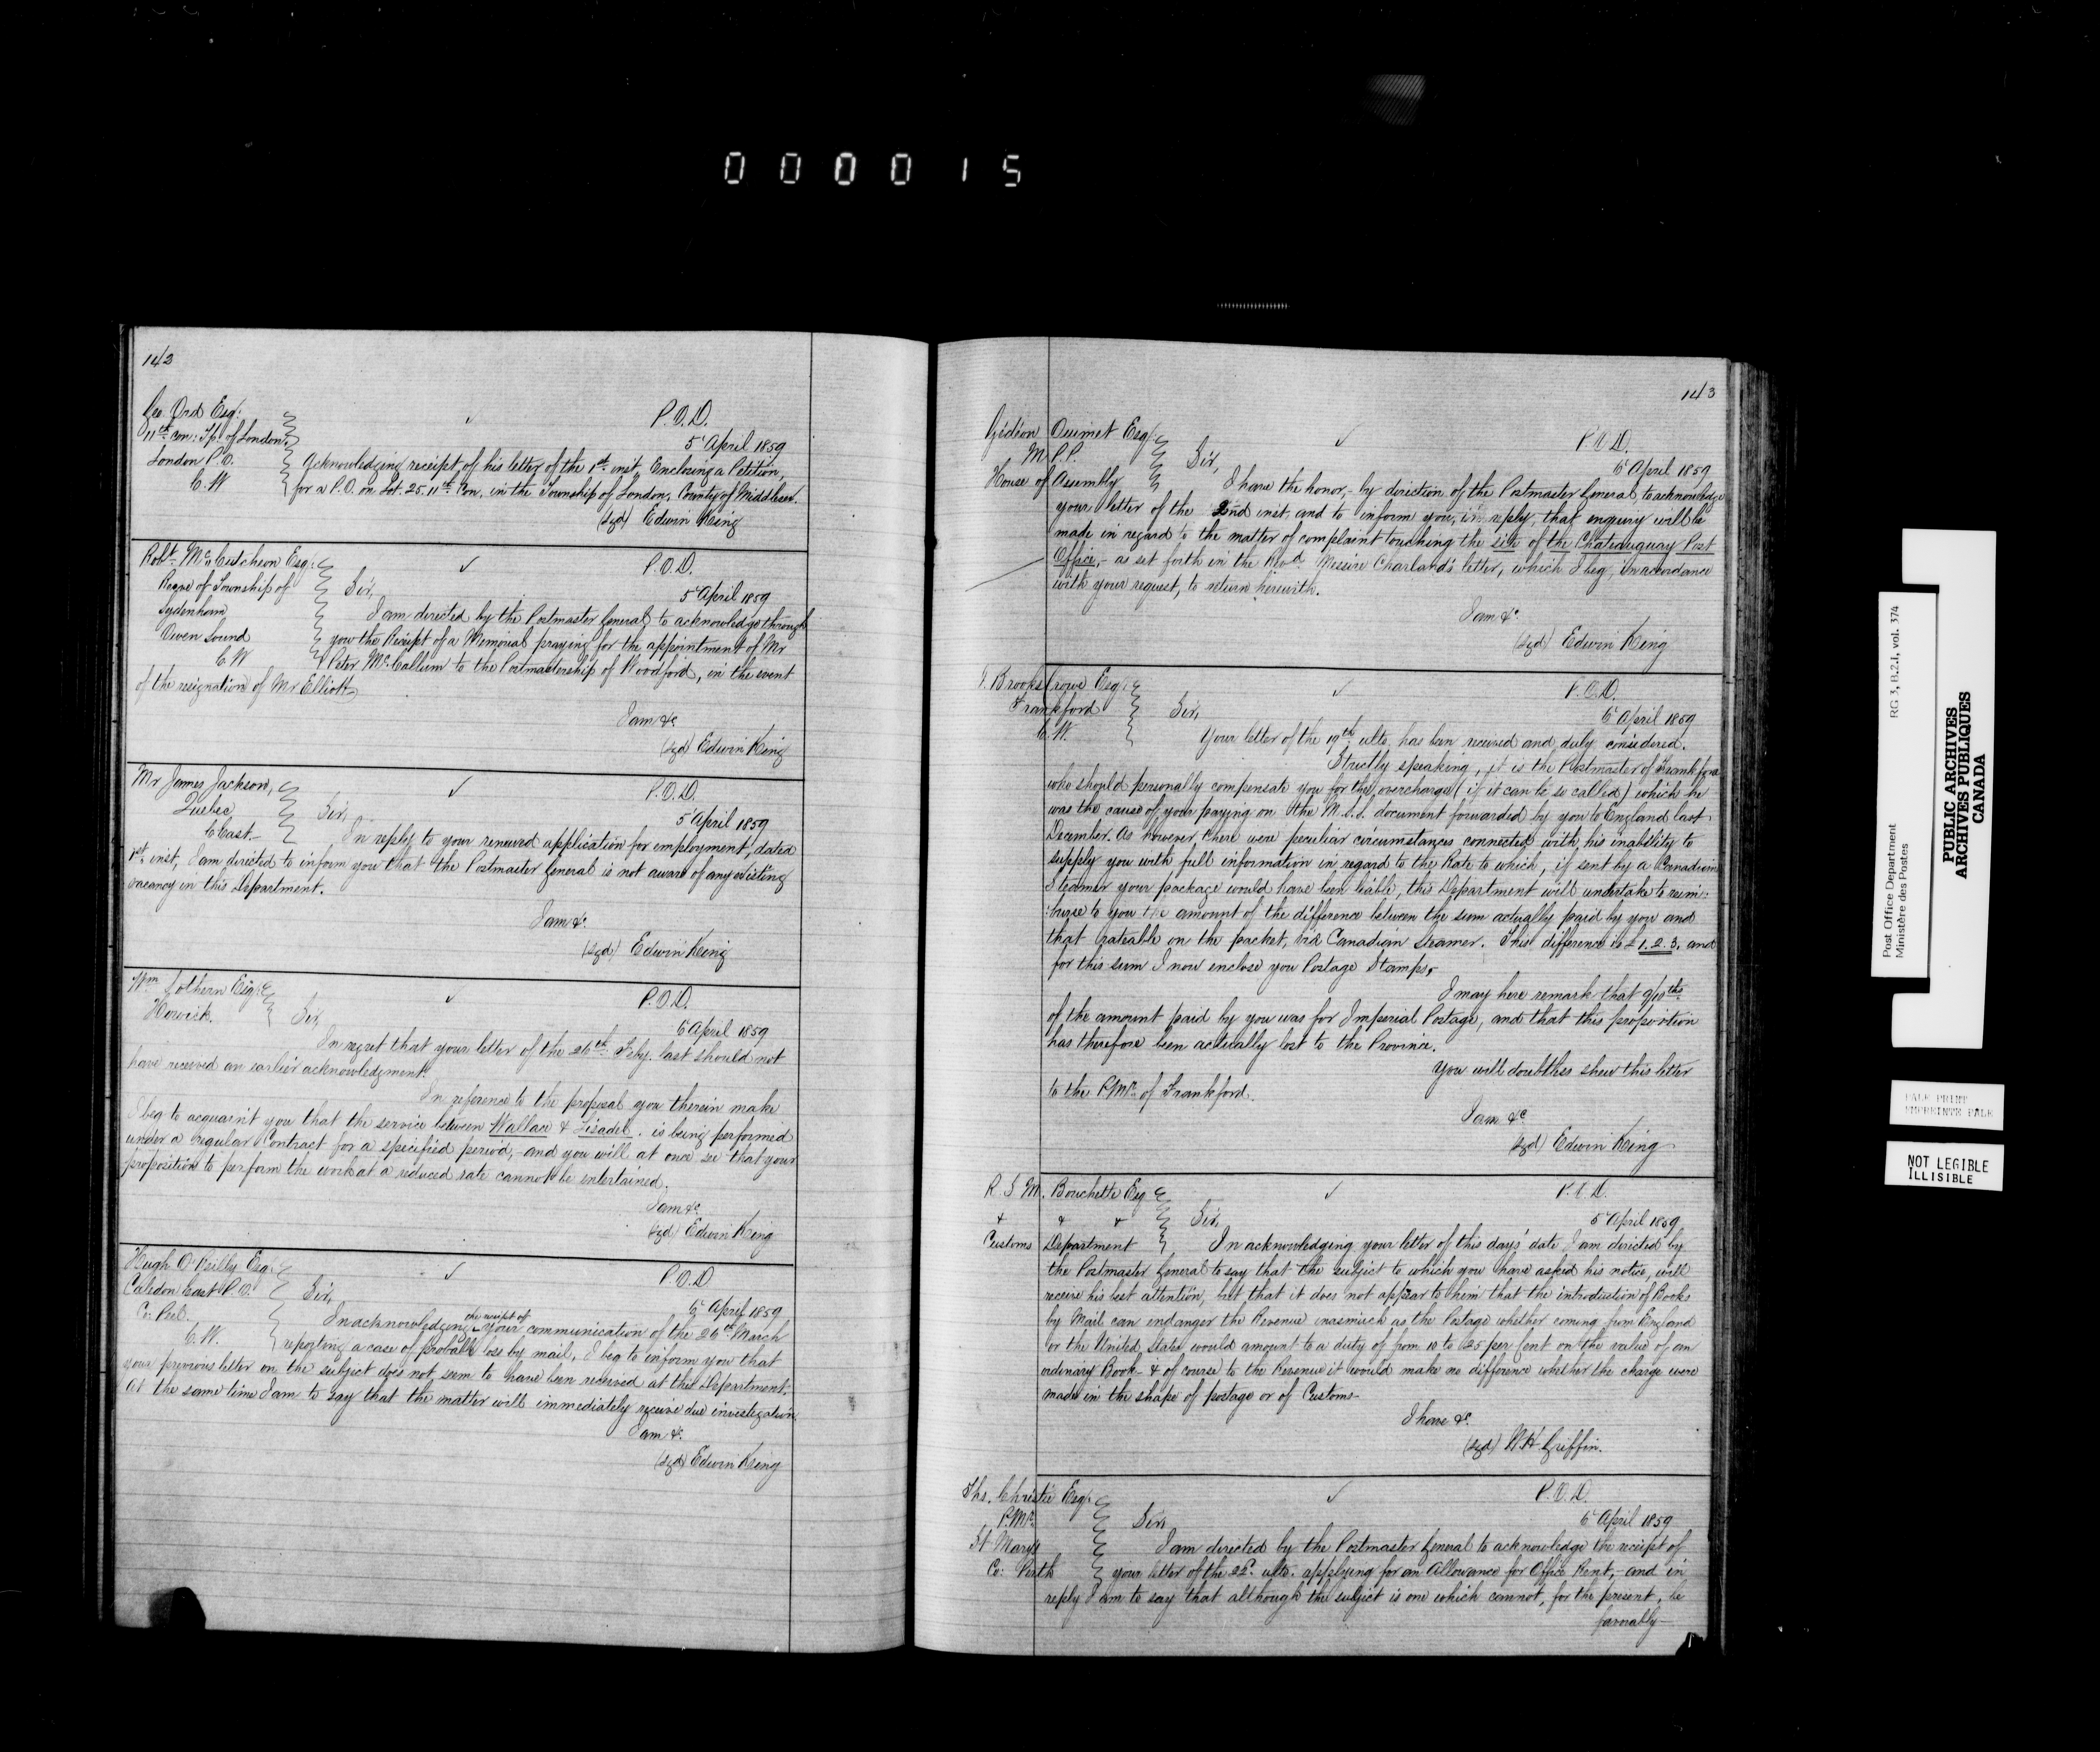 000015
142
Geo. Ord Esq:
11th Con: Tp. of London,
London P.O.
C.W
P.O.D.
5 April 1859
Acknowledging receipt of his letter of the 1st inst, Enclosing a Petition,
for a P.O. on Lot. 25. 11th Con. in the Township of London, County of Middlesex.
(sgd) Edwin King
Robt. McCutcheon Esq:
Reeve of Township of
Sydenham
Owen Sound
C.W
P.O.D.
5 April 1859
Sir,
I am directed by the Postmaster General to acknowledge through
you the Receipt of a Memorial praying for the appointment of Mr
Peter McCallum to the Postmastership of Woodford, in the event
of the resignation of Mr Elliott
I am &c
(sgd) Edwin King
Mr James Jackson,
Quebec,
C East.
P.O.D.
5 April 1859
Sir,
In reply to your renewed application for employment, dated
1st inst, I am directed to inform you that the Postmaster General is not aware of any existing
vacancy in this Department.
I am &c
(sgd) Edwin King
Wm Lothern Esq:
Howick.
P.O.D.
6 April 1859
Sir,
In regret that your letter of the 26th Feby. last should not
have received an earlier acknowledgment.
In reference to the proposal you therein make
I beg to acquaint you that the service between Wallace & Lisadel. is being performed
under a regular Contract for a specified period, - and you will at once see that your
proposition to perform the work at a reduced rate cannot be entertained.
I am &c
(sgd) Edwin King
Hugh O'Reilly Esq.
Caledon East P.O.
Co: Peel.
C.W.
P.O.D.
6 April 1859
Sir,
In acknowledging the receipt of your communication of the 26th March
reporting a case of probable loss by mail, I beg to inform you that
your previous letter on the subject does not seem to have been received at this Department.
At the same time I am to say that the matter will immediately receive due investigation.
I am &c
(sgd) Edwin King
143
Gideon Ouimet Esq:
M.P.P.
House of Assembly
P.O.D.
6 April 1859
Sir,
I have the honor, - by direction of the Postmaster General, to acknowledge
your letter of the 2nd inst. and to inform you, in reply, that enquiry will be
made in regard to the matter of complaint touching the site of the Chateauguay Post
Office, - as set forth in the Revd. Messire Charland's letter, which I beg, in accordance
with your request, to return herewith.
I am &c
(sgd) Edwin King
Brooks Crowe Esq:
Frankford
C.W.
P.O.D.
6 April 1859
Sir,
Your letter of the 19th ulto, has been received and duly considered.
Strictly speaking, it is the Postmaster of Frankford
who should personally compensate you for the overcharge (if it can be so called) which he
was the cause of your paying on the M.S.S. document forwarded by you to England last
December. As however there were peculiar circumstances connected with his inability to
supply you with full information in regard to the Rate to which, if sent by a Canadian
Steamer your package would have been liable, this Department will undertake to reim:
:burse to you the amount of the difference between the sum actually paid by you and
that rateable on the packet, via Canadian Steamer. This difference is £1.2.3, and
for this sum I now enclose you Postage Stamps.
I may here remark that 9/10ths
of the amount paid by you was for Imperial Postage, and that this proportion
has therefore been actually lost to the Province.
You will doubtless shew this letter
to the P.Mr. of Frankford.
I am &c
(sgd) Edwin King
R.S.M. Bouchette Esq
& & &
Customs Department
P.O.D.
5 April 1859
Sir,
In acknowledging your letter of this days' date, I am directed by
the Postmaster General to say that the subject to which you have asked his notice, will
receive his best attention, but that it does not appear to him that the introduction of Books
by Mail can endanger the Revenue inasmuch as the Postage whether coming from England
or the United States would amount to a duty of from 10 to 25 per Cent on the value of an
ordinary Book - & of course to the Revenue it would make no difference whether the charge were
made in the shape of postage or of Customs -
I have &c.
(sgd) W H Griffin.
Ths. Christie Esq:
P.Mr.
St Marys
Co: Perth
P.O.D.
6 April 1859
Sir,
I am directed by the Postmaster General to acknowledge the receipt of
your letter of the 22d ulto. applying for an Allowance for Office Rent, - and in
reply I am to say that although the subject is one which cannot, for the present, be
formally -
Post Office Department RG 3, B.2.1, vol. 374
Ministère des Postes
PUBLIC ARCHIVES
ARCHIVES PUBLIQUES
CANADA
PALE PRINT
EMPREINTE PALE
NOT LEGIBLE
ILLISIBLE